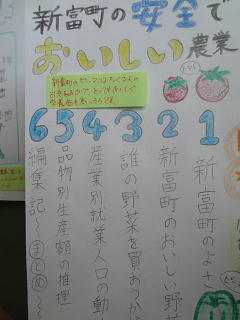 新富町の安全で
おいしい農業
トマト
新富町のピーマンはたくさんの
栄養価も高いそうです。
1 新富町のよさ
2 新富町のおいしい野菜
3 誰の野菜を買おうか
4 産業別就業人口の動
5 品物別生産額の推理
6 編集記〜まとめ〜